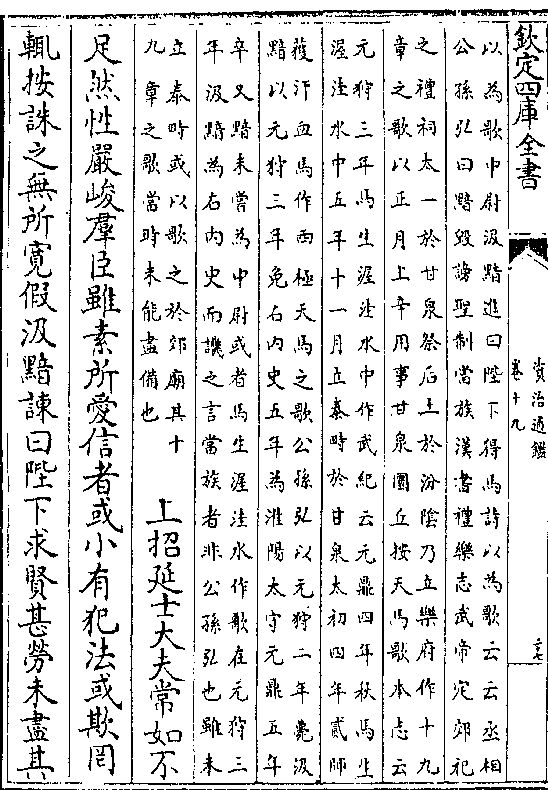 欽定四庫全書
資治通鑑
卷十九
以為歌中尉汲黯進曰陛下得馬詩以為歌云云丞相
公孫弘曰黯毀謗聖制當族漢書禮樂志武帝定郊祀
之禮祠太一於甘泉祭后土於汾隂乃立樂府作十九
章之歌以正月上辛用事甘泉圜丘按天馬歌本志云
元狩三年馬生渥洼水中作武紀云元鼎四年秋馬生
渥洼水中五年十一月立泰畤於甘泉太初四年貳師
獲汗血馬作西極天馬之歌公孫弘以元狩二年薨汲
黯以元狩三年免右内史五年為淮陽太守元鼎五年
卒又黯未嘗為中尉或者馬生渥洼水作歌在元狩三
年汲黯為右内史而譏之言當族者非公孫弘也雖未
立泰畤或以歌之於郊廟其十
九章之歌當時未能盡備也
上招延士大夫常如不
足然性嚴峻羣臣雖素所愛信者或小有犯法或欺罔
輒按誅之無所寛假汲黯諫曰陛下求賢甚勞未盡其